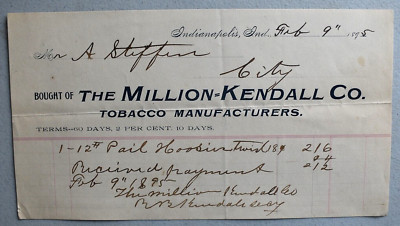 Indianapolis, Ind. Feb 9" 1895
Mr A Steffen
City
BOUGHT OF THE MILLION-KENDALL CO.
TOBACCO MANUFACTURERS.
TERMS—60 DAYS, 2 PER CENT. 10 DAYS.
1-12# Pail Hoosier Twist 18¢ 216
Received payment
Feb 9" 1895
The Million Kendall Co